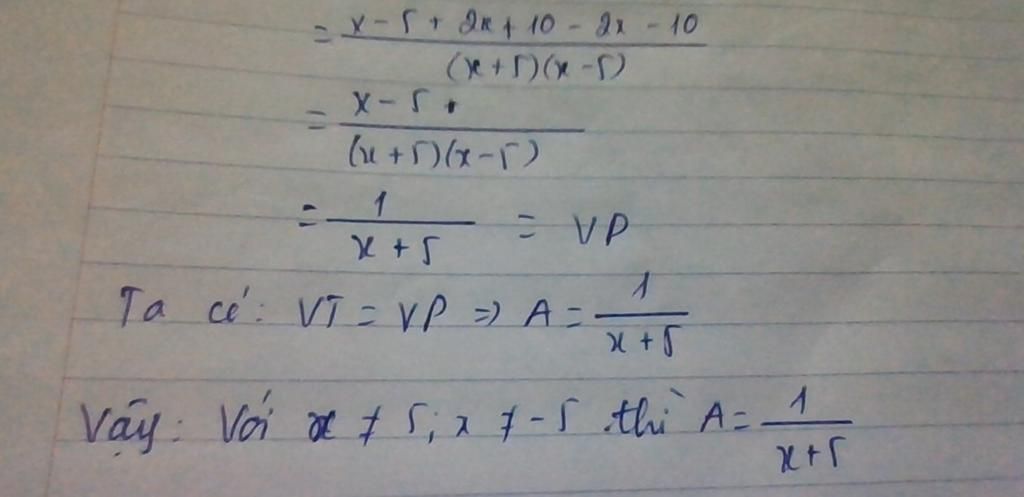 = (x - 5 + 2x + 10 - 2x - 10) / ((x + 5)(x - 5))
= (x - 5) / ((x + 5)(x - 5))
= 1 / (x + 5) = VP
Ta có: VT = VP => A = 1 / (x + 5)
Vậy: Với x ≠ 5; x ≠ -5 thì A = 1 / (x + 5)